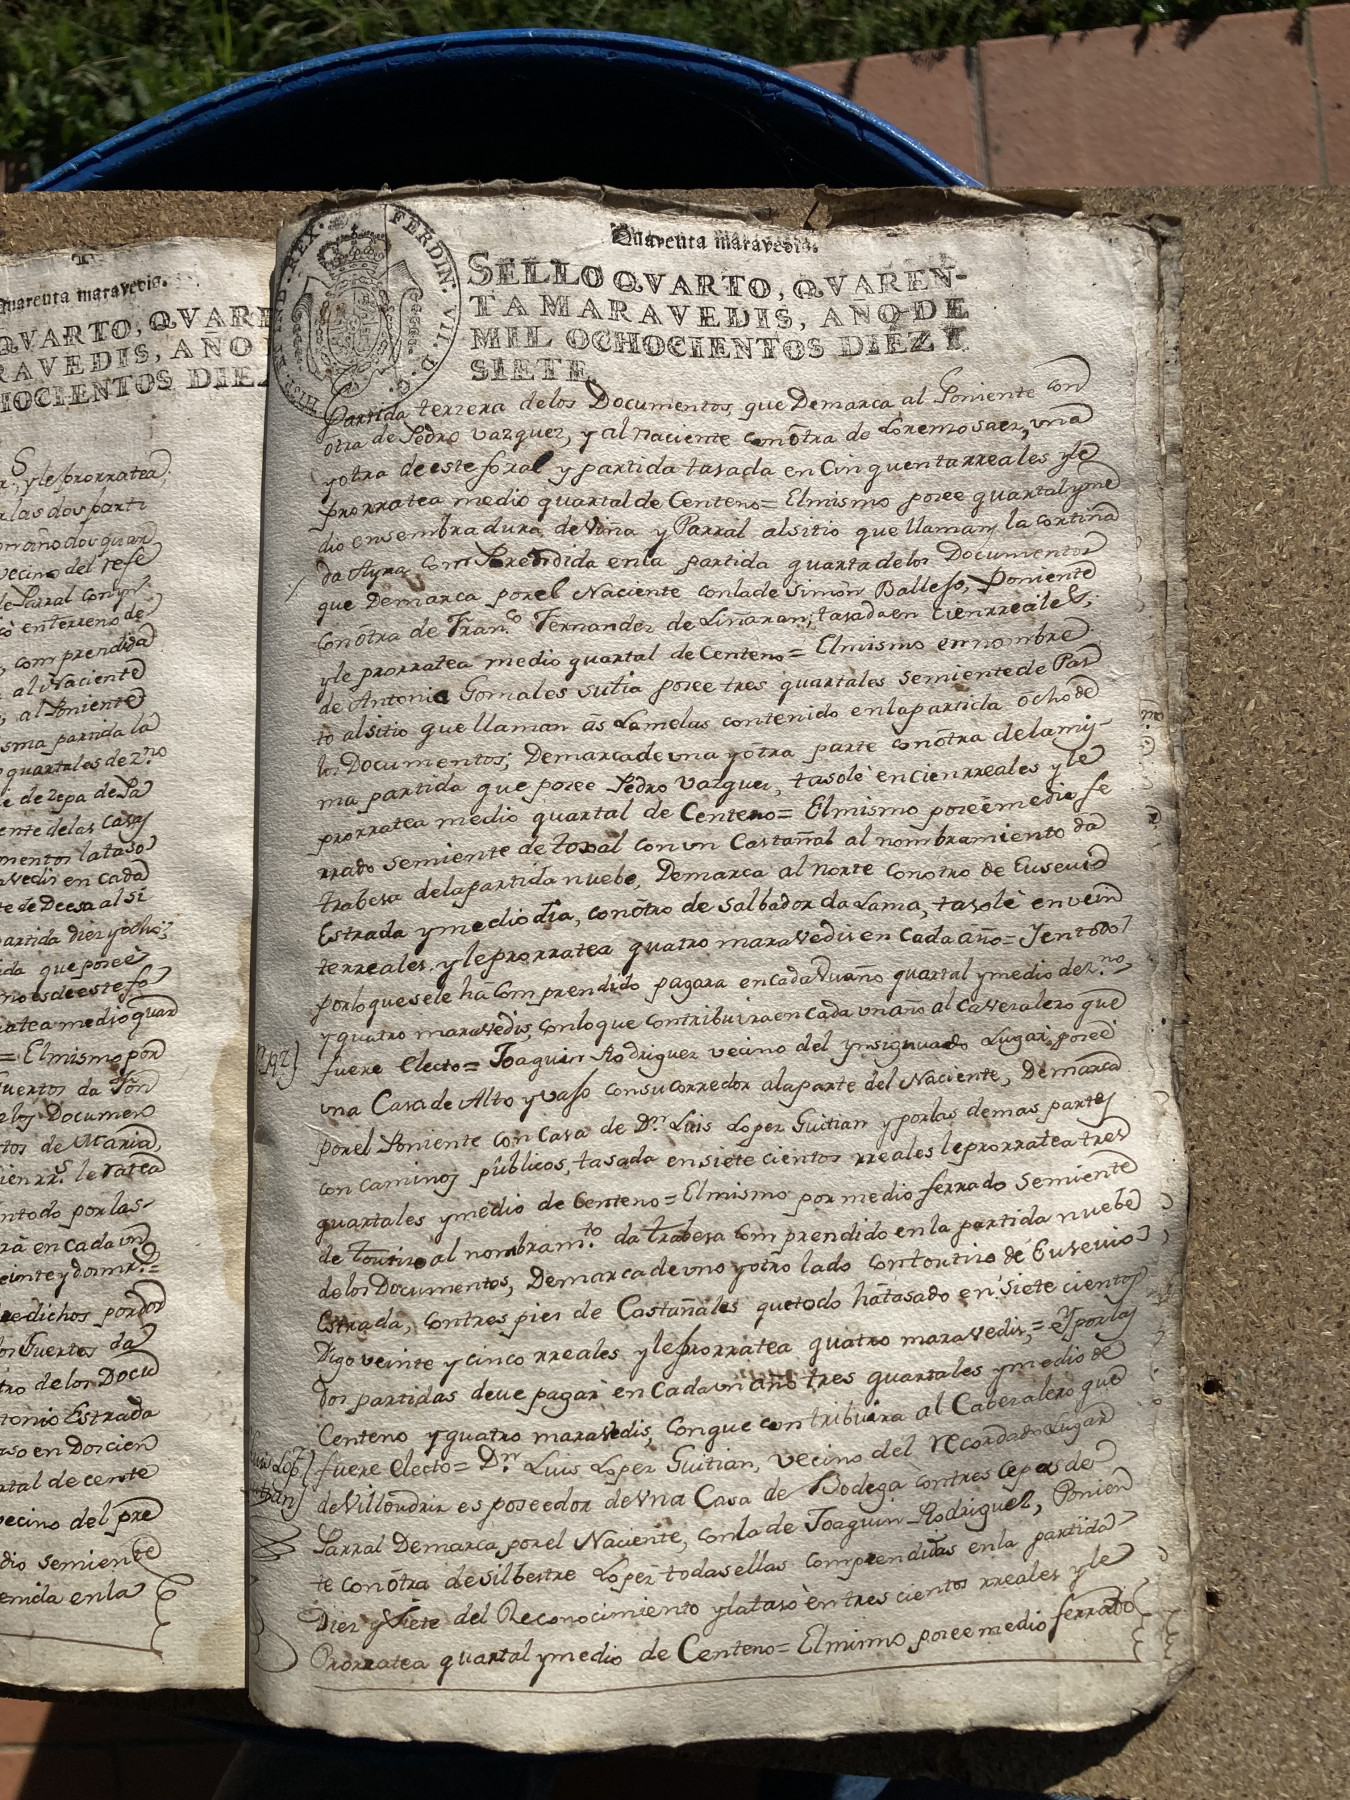 Quarenta maravedis.
QVARTO, QVARE
RAVEDIS, AÑO
HOCIENTOS DIEZ
y le prorratea
vecino del refe
comprendida
al Naciente
al Poniente
sma partida la
quartales de z.no
te de zepa de Pa
ente de las Casas
mentos la taso
en Cada
te de Deesa al si
partida diez y ocho;
ida que poseé
no es de este fo
ratea medio quar
= El mismo por
los Documen
tos de Maria,
le ratea
ntodo por las
rá en cada un
einte y dos mrs.=
edichos por los
los Fuertos da
tro de los Docu
tonio Estrada
aso en Dorcien
rtal de cente
vecino del pre
dio semiente
enida en la
HISP. ET IND. REX. FERDIN. VII. D. G.
Quarenta maravedis.
SELLO QVARTO, QVAREN-
TA MARAVEDIS, AÑO DE
MIL OCHOCIENTOS DIEZ I
SIETE.
Partida terzera delos Documentos, que Demarca al Poniente con
otra de Pedro Vazquez, y al naciente con ôtra de Lorenzo saez, una
y otra de este foral y partida tasada en Cinquenta rreales y le
prorratea medio quartal de Centeno= El mismo posee quartal y me
dio ensembradura de Viña y Parral al sitio que llaman, la cortiña
da Ayra Comprendida en la partida quarta de los Documentos
que Demarca por el Naciente con la de Simon Balleso, Poniente
con ôtra de Fran.co Fernandez de Liñaran; tasada en Cien rreales;
y le prorratea medio quartal de Centeno= El mismo en nombre
de Antonia Gonzales su tia posee tres quartales semiente de Pas
to al sitio que llaman âs Lamelas contenido en la partida ocho de
los Documentos; Demarca de una y ôtra parte con ôtra de la mis-
ma partida que posee Pedro Vazquez, tasolé en cien rreales y le
prorratea medio quartal de Centeno= El mismo poseé medio fe
rrado semiente de toxal con un Castañal al nombramiento da
trabesa de la partida nuebe, Demarca al norte con otro de Eusevio
Estrada y mediodia, con ôtro de Salbador da Lama, tasolé en vein
te rreales y le prorratea quatro maravedis en Cada año= Y en todo
por lo que se le há Comprendido pagara en cada un año quartal y medio de z.no,
y quatro maravedis, con lo que contribuira en Cada un año al Caveralero que
fuere Electo= Joaquin Rodriguez vecino del ynsignuado Lugar, poseé
una Casa de Alto y vajo con su corredor a la parte del Naciente, Demarca
por el Poniente con Casa de D.n Luis Lopez Guitian y por las demas partes
con caminos públicos, tasada en siete cientos rreales le prorratea tres
quartales y medio de Centeno= El mismo por medio ferrado semiente
de Toutizo al nombram.to da trabesa comprendido en la partida nuebe
de los Documentos, Demarca de uno y otro lado con toutizo de Eusevio
Estrada, con tres pies de Castañales que todo há tasado en siete cientos
Digo veinte y cinco rreales y le prorratea quatro maravedis,= Y por las
Dos partidas deve pagar en Cada un año tres quartales y medio de
Centeno y quatro maravedis, con que contribuira al Caberalero que
fuere Electo= D.n Luis Lopez Guitian, vecino del recordado Lugar
de Villoudriz es poseedor de una Casa de Bodega con tres cepas de
Parral Demarca por el Naciente, con la de Joaquin Rodriguez, Ponien
te con ôtra de Silbestre Lopez todas ellas comprendidas en la partida
Diez y siete del Reconocimiento y la tasó en tres cientos rreales y le
Prorratea quartal y medio de Centeno= El mismo posee medio ferrado